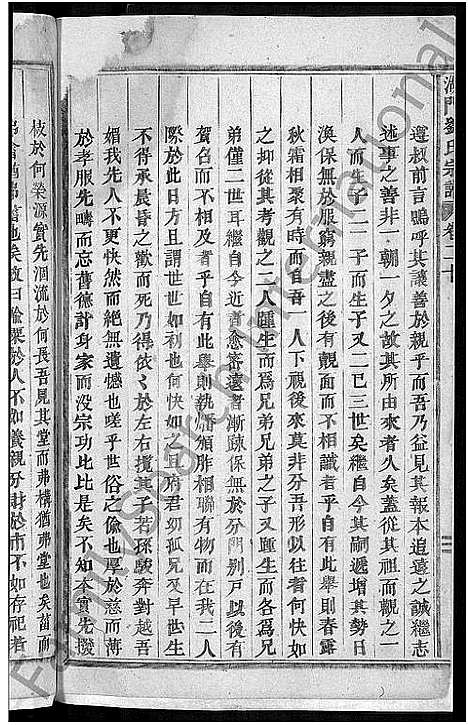 湖門劉氏宗譜 卷二十
遵叔前言嗚呼其讓善於親乎而吾乃益見其報本追遠之誠繼志
述事之善非一朝一夕之故其所由來者久矣蓋從其祖而觀之一
人而生子二一子而生子又二已三世矣繼自今其嗣遞增其勢日
渙保無於服窮親盡之後有覿面而不相識者乎自有此舉則春露
秋霜相聚有時而自吾一人下視後來莫非分吾形以往者何快如
之抑從其考觀之二人踵生而爲兄弟兄弟之子又踵生而各爲兄
弟僅二世耳繼自今近者愈密遠者漸疎保無於分門別戶以後有
賀召而不相及者乎自有此舉則執 頒胙相聯有物而在我二人
際於此者世世如新也何快如之且府君幼孤兄又早世生
不得承晨昏之歡而死乃得依依於左右攬其子若孫駿奔對越吾
媚我先人不更快然而絕無遺憾也嗟乎世俗之偷也厚於慈而薄
於孝服先疇而忘舊德計身家而沒宗功比比是矣不知本實先撥
枝於何榮源實先涸流於何長吾見其堂而弗構猶弗堂也矣苗而
也矣故曰輸粟於人不如養親分財於市不如存祀若
FamilySearch International